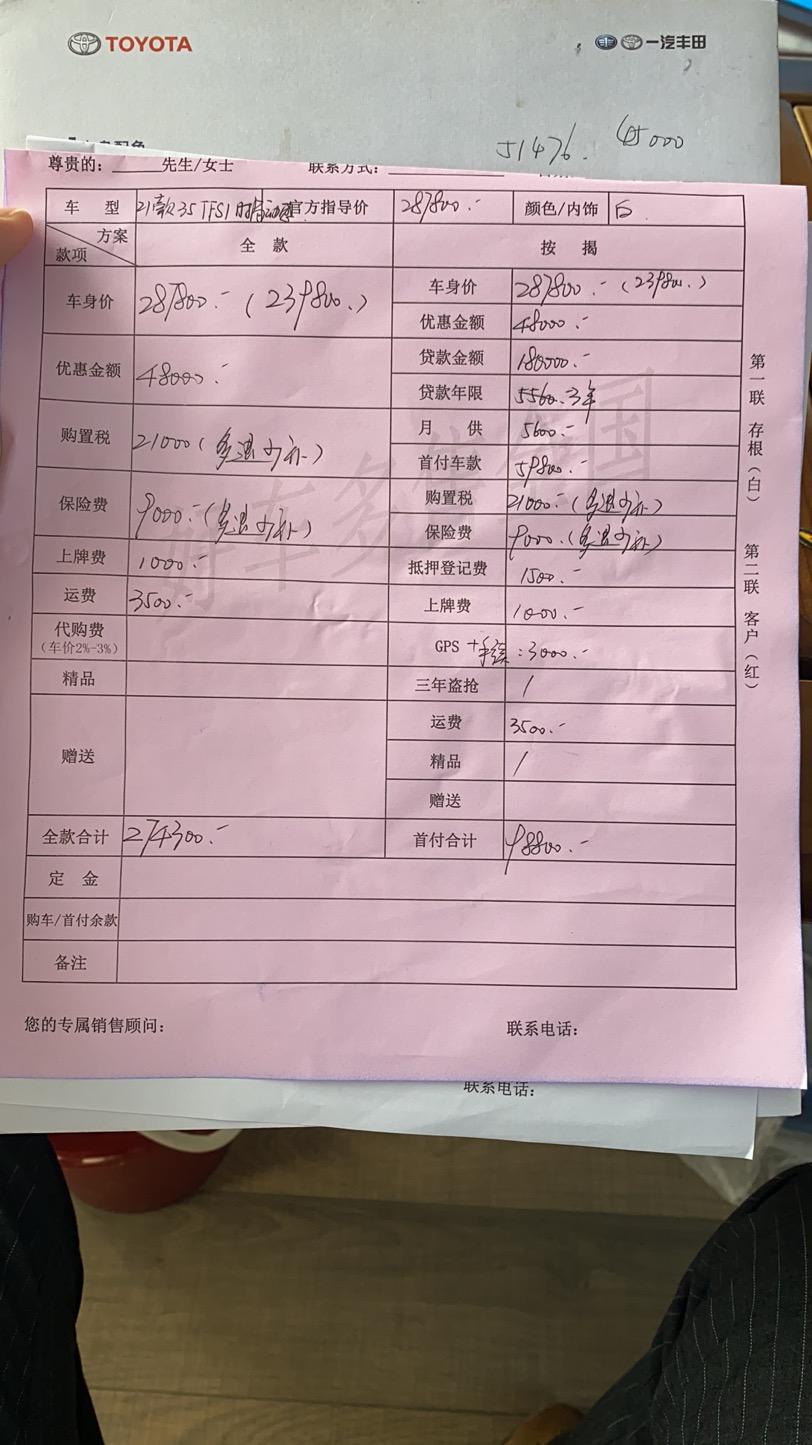 TOYOTA 一汽丰田
51476. 45000
尊贵的： 先生/女士 联系方式：
车 型 21款35 TFSI 时尚动感 官方指导价 287800.- 颜色/内饰 白.
方案 款项 全 款 按 揭
车身价 287800.-（239800.） 车身价 287800.-（239800.）
优惠金额 48000.-
优惠金额 48000.- 贷款金额 180000.-
贷款年限 5560.3年
购置税 21000（多退少补） 月 供 5600.-
首付车款 59800.-
保险费 9000.-（多退少补） 购置税 21000.-（多退少补）
保险费 9000.（多退少补）
上牌费 1000.- 抵押登记费 1500.-
运费 3500.- 上牌费 1000.-
代购费
（车价2%-3%） GPS +手续：3000.-
精品 三年盗抢 /
赠送 运费 3500.-
精品 /
赠送
全款合计 274300.- 首付合计 98800.-
定 金
购车/首付余款
备注
第一联 存根（白） 第二联 客户（红）
您的专属销售顾问： 联系电话：
联系电话：